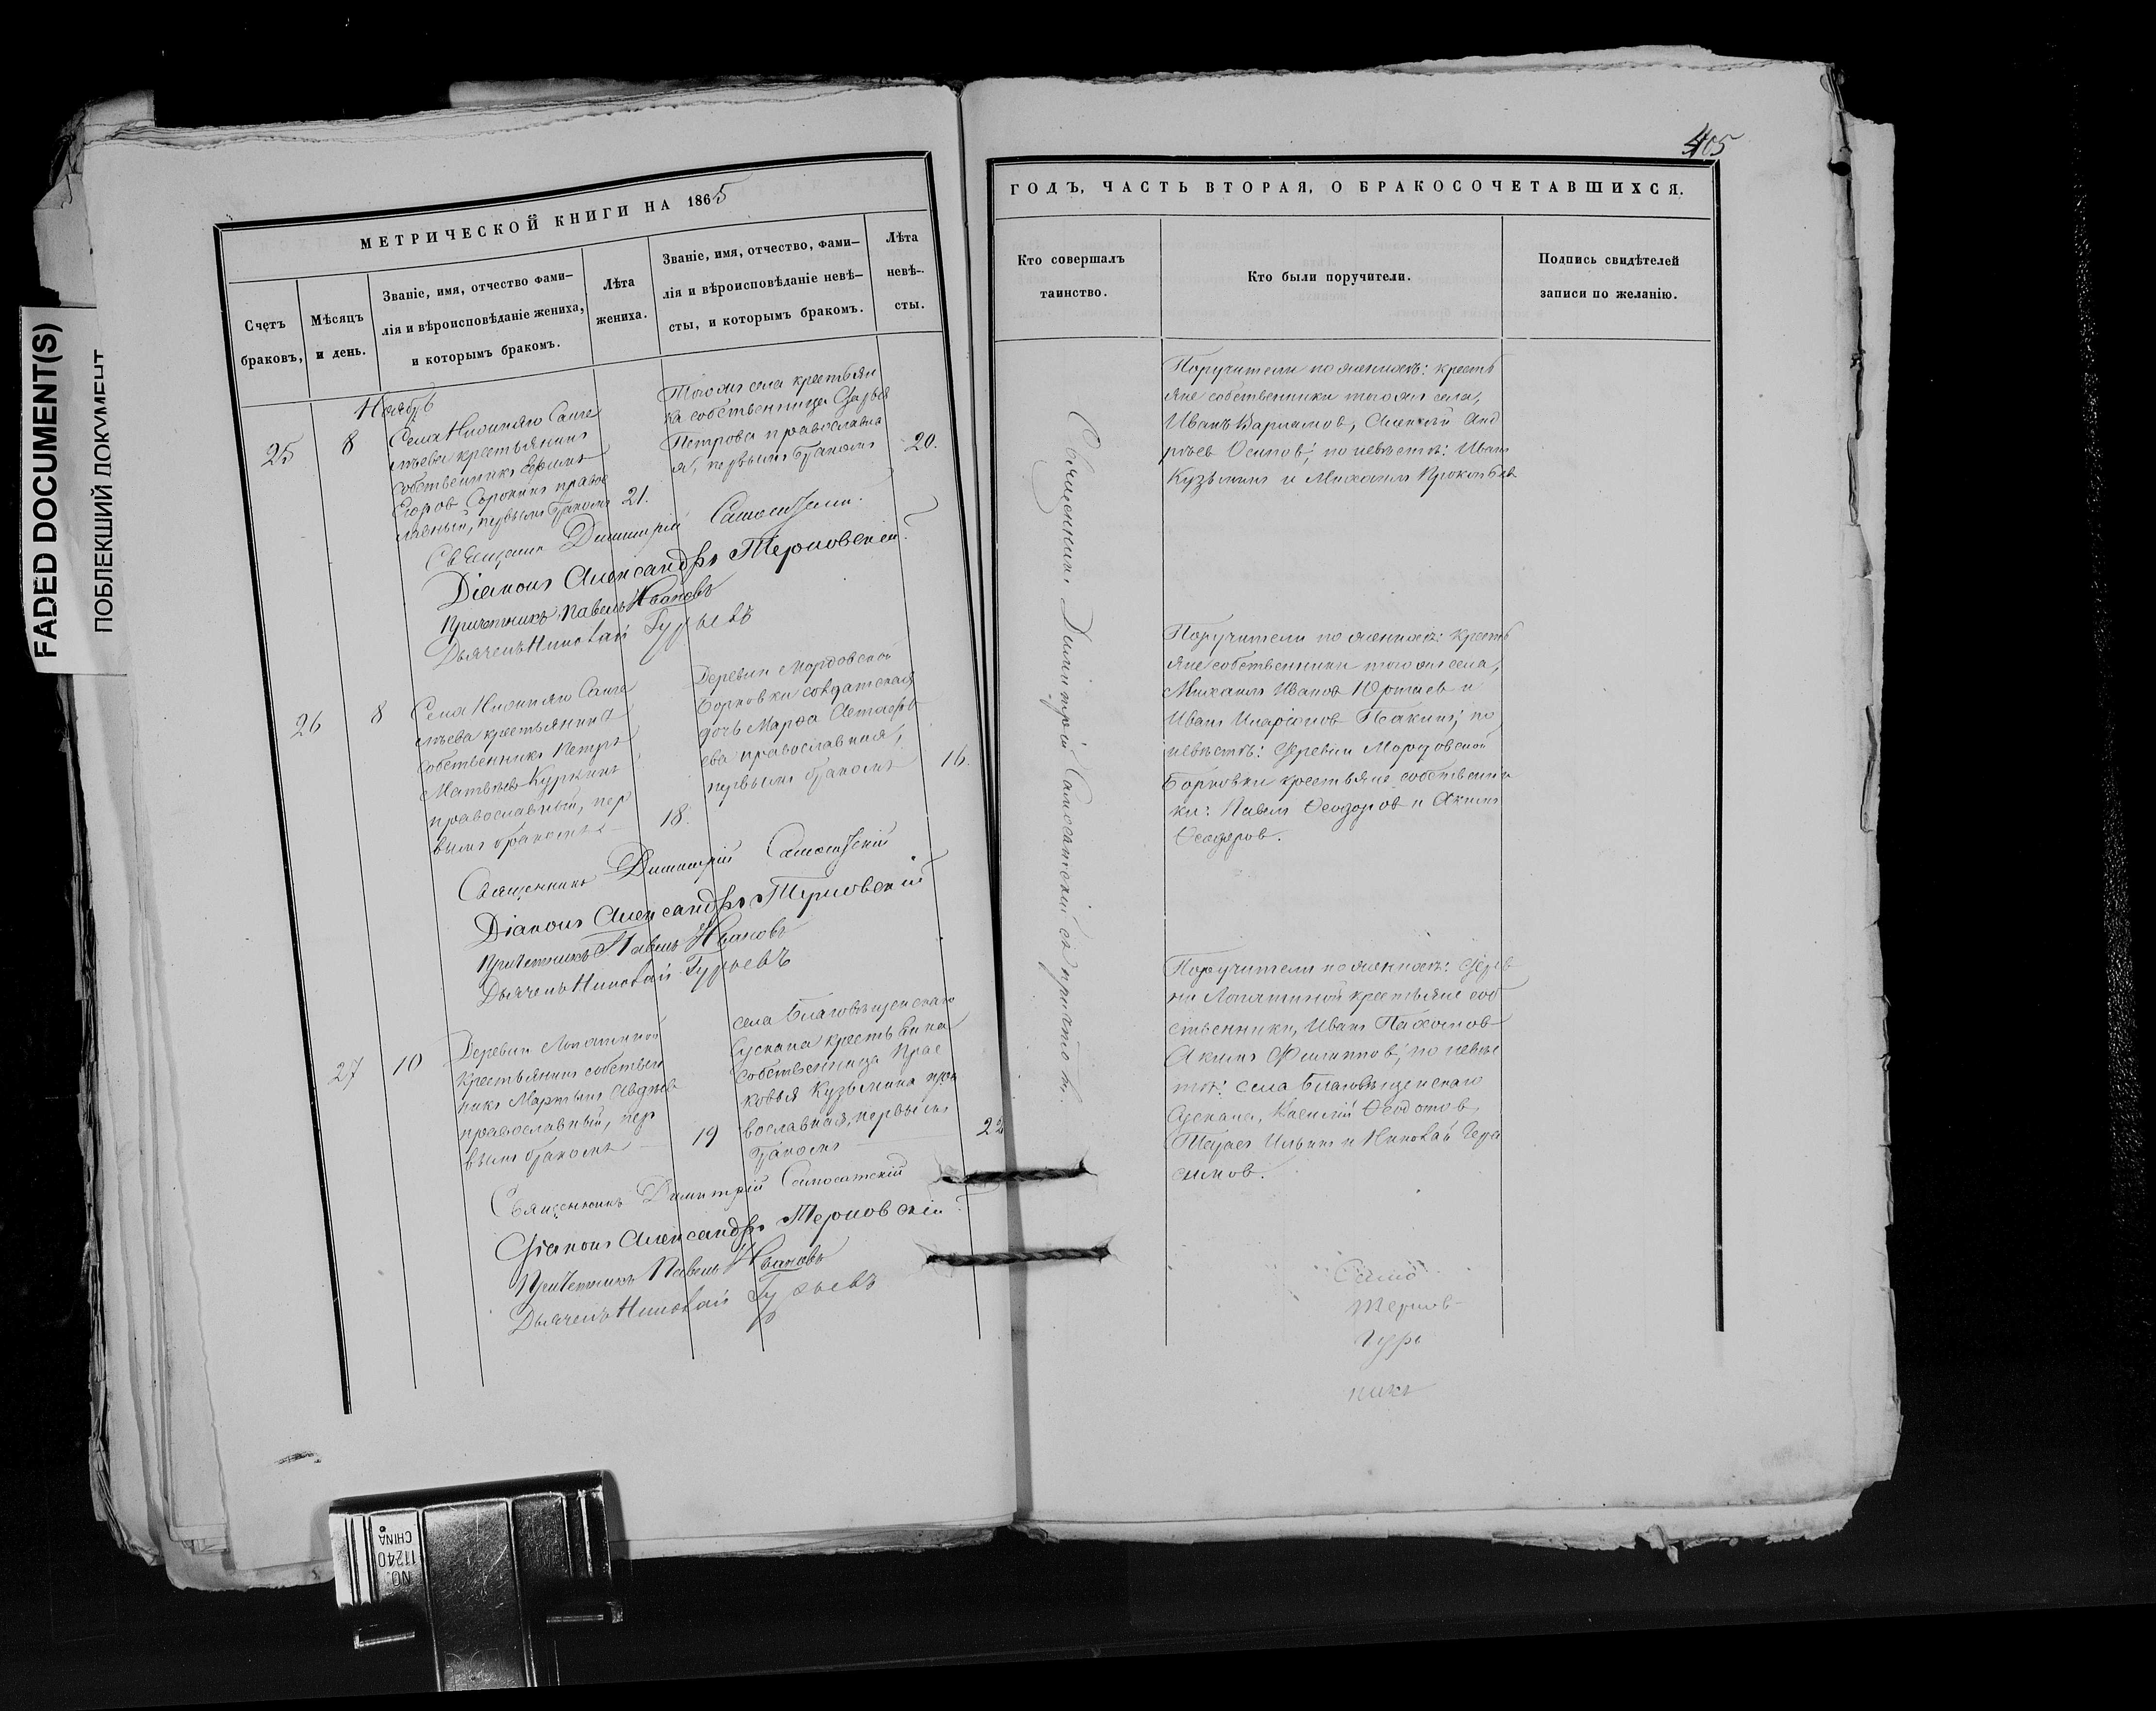 FADED DOCUMENT(S)
ПОБЛЕКШИЙ ДОКУМЕНТ
МЕТРИЧЕСКОЙ КНИГИ НА 1865
Счетъ
браковъ,
Мѣсяцъ
и день.
Званіе, имя, отчество фами-
лія и вѣроисповѣданіе жениха,
и которымъ бракомъ.
Лѣта
жениха.
Званіе, имя, отчество, фами-
лія и вѣроисповѣданіе невѣ-
сты, и которымъ бракомъ.
Лѣта
невѣ-
сты.
Ноябрь
25
8
Села Нижняго Санге
лѣева крестьянинъ
собственникъ Ефимъ
Егоров Сорокинъ право
славный, первымъ бракомъ
21.
Того же села крестьян
ка собственница Дарья
Петрова православна
я, первымъ бракомъ
20.
Священникъ Димитрій
Діаконъ Александръ Терновскій
Причетникъ Павелъ Ивановъ
Дьячекъ Николай Гурьевъ
26
8
Села Нижняго Санге
лѣева крестьянинъ
собственникъ Петръ
Матвѣевъ Куркинъ
православный, пер
вымъ бракомъ
18.
Деревни Мордовской
Борковки солдатская
дочь Марѳа Астафь
ева православная,
первымъ бракомъ
16.
Священникъ Димитрій Самосатскій
Діаконъ Александръ Терновскій
Причетникъ Павелъ Ивановъ
Дьячекъ Николай Гурьевъ
27
10
Деревни Лопатиной
крестьянинъ собствен
никъ Мартынъ Авдѣев
православный, пер
вымъ бракомъ
19
села Благовѣщенскаго
Сускана крестьянка
собственница Прас
ковья Кузьмина пра
вославная, первымъ
бракомъ
22
Священникъ Димитрій Самосатскій
Діаконъ Александръ Терновскій
Причетникъ Павелъ Ивановъ
Дьячекъ Николай Гурьевъ
405
ГОДЪ, ЧАСТЬ ВТОРАЯ, О БРАКОСОЧЕТАВШИХСЯ.
Кто совершалъ
таинство.
Кто были поручители.
Подпись свидѣтелей
записи по желанію.
Священникъ Димитрій Самосатскій съ причтомъ.
Поручители по женихѣ: кресть
яне собственники того же села,
Иванъ Варламов, Алексѣй Анд
рѣев Осипов; по невѣстѣ: Иванъ
Кузьминъ и Михаилъ Прокопьев
Поручители по женихѣ: кресть
яне собственники того же села,
Михаилъ Иванов Юртаев и
Иванъ Иларіонов Пакинъ; по
невѣстѣ: Деревни Мордовской
Борковки крестьяне собственни
ки: Павелъ Ѳеодоров и Акимъ
Ѳеодоров.
Поручители по женихѣ: дерев
ни Лопатиной крестьяне соб
ственники, Иванъ Пахомов
Акимъ Филиппов; по невѣс
тѣ: села Благовѣщенскаго
Сускана, Василій Ѳеодотов,
Ильинъ и Николай Гера
симов.
Само
Тернов-
Гурь
никъ
NO.
11240
CHINA